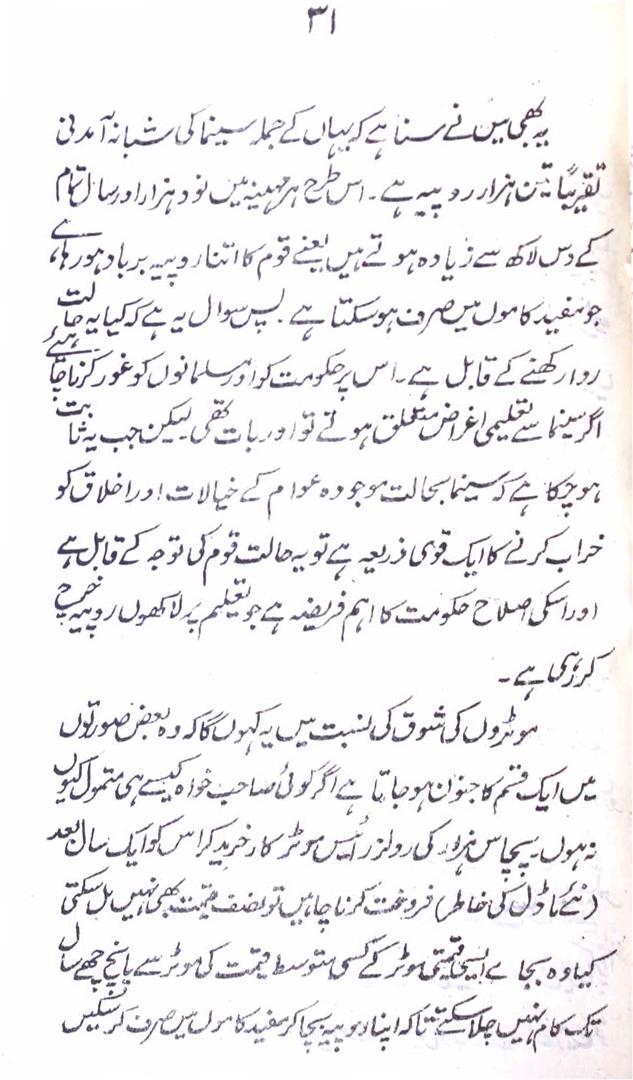 ۳۱
یہ بھی میں نے سنا ہے کہ یہاں کے جملہ سینما کی شبانہ آمدنی
تقریباً تین ہزار روپیہ ہے۔ اس طرح ہر مہینہ میں نود ہزار اور سال تمام
کے دس لاکھ سے زیادہ ہوتے ہیں یعنے قوم کا اتنا روپیہ برباد ہو رہا ہے،
جو مفید کاموں میں صرف ہو سکتا ہے۔ پس سوال یہ ہے کہ کیا یہ حالت
روا رکھنے کے قابل ہے۔ اس پر حکومت کو اور مسلمانوں کو غور کرنا چاہئیے
اگر سینما سے تعلیمی اغراض متعلق ہوتے تو اور بات تھی۔ لیکن جب یہ ثابت
ہو چکا ہے کہ سینما بحالت موجودہ عوام کے خیالات اور اخلاق کو
خراب کرنے کا ایک قوی ذریعہ ہے تو یہ حالت قوم کی توجہ کے قابل ہے
اور اسکی اصلاح حکومت کا اہم فریضہ ہے جو تعلیم پر لاکھوں روپیہ خرچ
کر رہی ہے۔
موٹروں کی شوق کی نسبت میں یہ کہوں گا کہ وہ بعض صورتوں
میں ایک قسم کا جنون ہو جاتا ہے اگر کوئی صاحب خواہ کیسے ہی متمول کیوں
نہ ہوں۔ پچاس ہزار کی رولز رائس موٹر کار خرید کر اس کو ایک سال بعد
(نئے ماڈل کی خاطر) فروخت کرنا چاہیں تو نصف قیمت بھی نہیں مل سکتی
کیا وہ بجاے ایسی قیمتی موٹر کے کسی متوسط قیمت کی موٹر سے پانچ چھے سال
تک کام نہیں چلا سکتے تاکہ اپنا روپیہ بچا کر مفید کاموں میں صرف کر سکیں